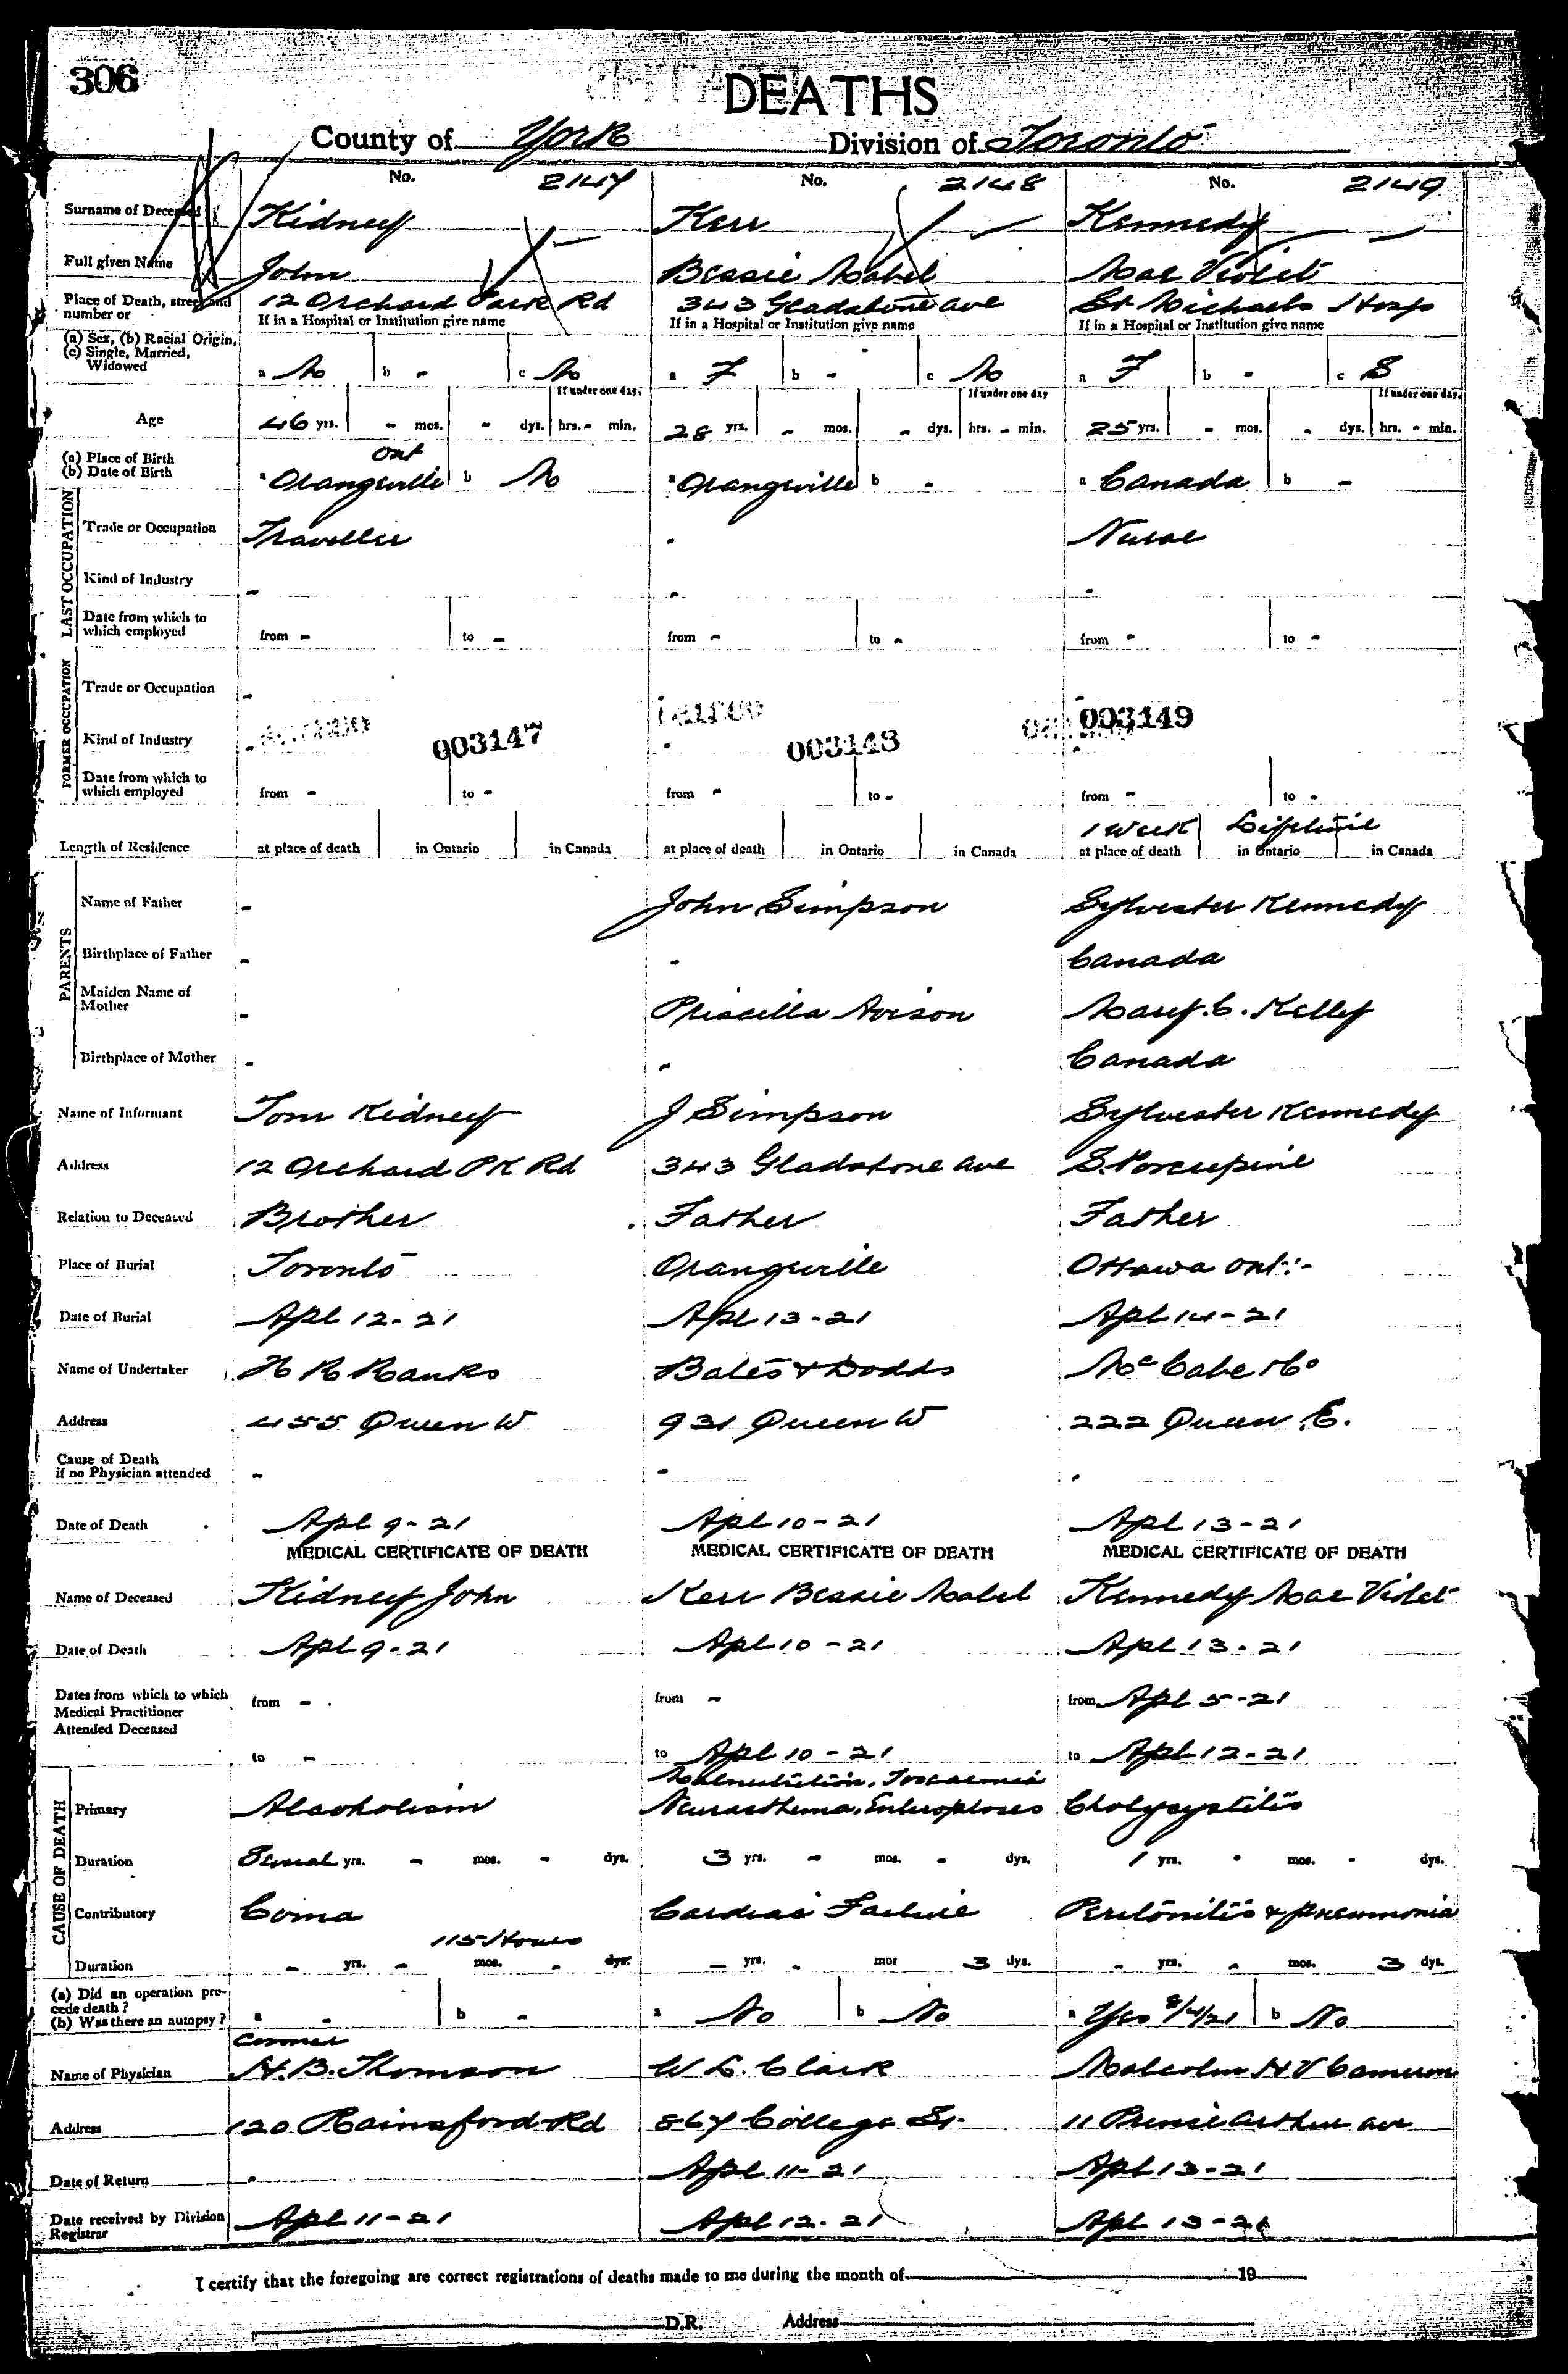 306
DEATHS
County of York Division of Toronto
No. 2147 No. 2148 No. 2149
Surname of Deceased Kidney Kerr Kennedy
Full given Name John Bessie Mabel Mae Violet
Place of Death, street and number or 12 Orchard Park Rd 343 Gladstone Ave St Michaels Hosp
If in a Hospital or Institution give name If in a Hospital or Institution give name If in a Hospital or Institution give name
(a) Sex, (b) Racial Origin,
(c) Single, Married,
Widowed a M b - c M a F b - c M a F b - c S
If under one day. If under one day If under one day.
Age 46 yrs. - mos. - dys. hrs. - min. 28 yrs. - mos. - dys. hrs. - min. 25 yrs. - mos. - dys. hrs. - min.
Ont
(a) Place of Birth
(b) Date of Birth a Orangeville b M a Orangeville b - a Canada b -
LAST OCCUPATION
Trade or Occupation Traveller - Nurse
Kind of Industry - - -
Date from which to which employed from - to - from - to - from - to -
FORMER OCCUPATION
Trade or Occupation - -
Kind of Industry - 003147 - 003148 003149
Date from which to which employed from - to - from - to - from - to -
1 week Lifetime
Length of Residence at place of death in Ontario in Canada at place of death in Ontario in Canada at place of death in Ontario in Canada
PARENTS
Name of Father - John Simpson Sylvester Kennedy
Birthplace of Father - - Canada
Maiden Name of Mother - Priscilla Avison Mary. C. Kelly
Birthplace of Mother - - Canada
Name of Informant Tom Kidney J Simpson Sylvester Kennedy
Address 12 Orchard PK Rd 343 Gladstone Ave S. Porcupine
Relation to Deceased Brother Father Father
Place of Burial Toronto Orangeville Ottawa Ont:-
Date of Burial Apl 12-21 Apl 13-21 Apl 14-21
Name of Undertaker H R Ranks Bates & Dodds McCabe & Co
Address 455 Queen W 931 Queen W 222 Queen E.
Cause of Death
if no Physician attended - - -
Date of Death Apl 9-21 Apl 10-21 Apl 13-21
MEDICAL CERTIFICATE OF DEATH MEDICAL CERTIFICATE OF DEATH MEDICAL CERTIFICATE OF DEATH
Name of Deceased Kidney John Kerr Bessie Mabel Kennedy Mae Violet
Date of Death Apl 9-21 Apl 10-21 Apl 13-21
Dates from which to which
Medical Practitioner
Attended Deceased from - from - from Apl 5-21
to - to Apl 10-21 to Apl 12-21
CAUSE OF DEATH
Malnutrition, Toxaemia
Primary Alcoholism Neurasthenia, Enteroptoses Cholycystitis
Duration Several yrs. - mos. - dys. 3 yrs. - mos. - dys. 1 yrs. - mos. - dys.
Contributory Coma Cardiac Failure Peritonitis & pneumonia
115 Hours
Duration - yrs. - mos. - dys. - yrs. - mos 3 dys. - yrs. - mos. 3 dys.
(a) Did an operation precede death?
(b) Was there an autopsy? a - b - a No b No a Yes 8/4/21 b No
Coroner
Name of Physician H. B. Thomson W L. Clark Malcolm H V Cameron
Address 120 Hainsford Rd 867 College St. 11 Prince Arthur Ave
Date of Return - Apl 11-21 Apl 13-21
Date received by Division Registrar Apl 11-21 Apl 12-21 Apl 13-21
I certify that the foregoing are correct registrations of deaths made to me during the month of 19
D.R. Address